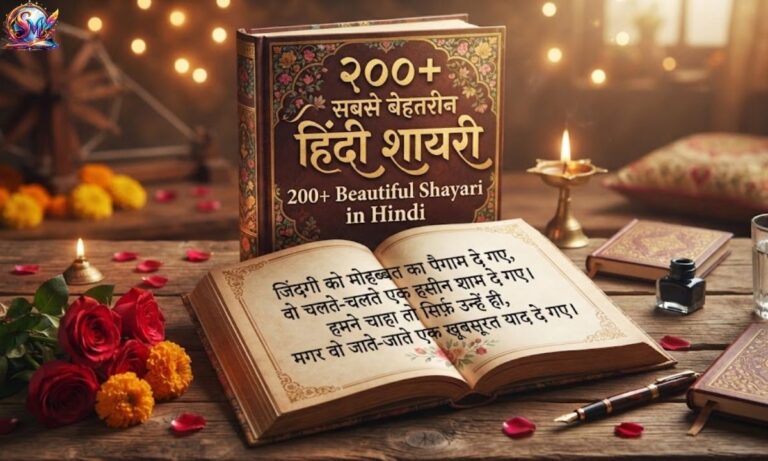 SM
२००+
सबसे बेहतरीन
हिंदी शायरी
200+ Beautiful Shayari
in Hindi
जिंदगी को मोहब्बत का पैगाम दे गए,
वो चलते-चलते एक हसीन शाम दे गए।
हमने चाहा तो सिर्फ़ उन्हें ही,
मगर वो जाते-जाते एक खूबसूरत याद दे गए।